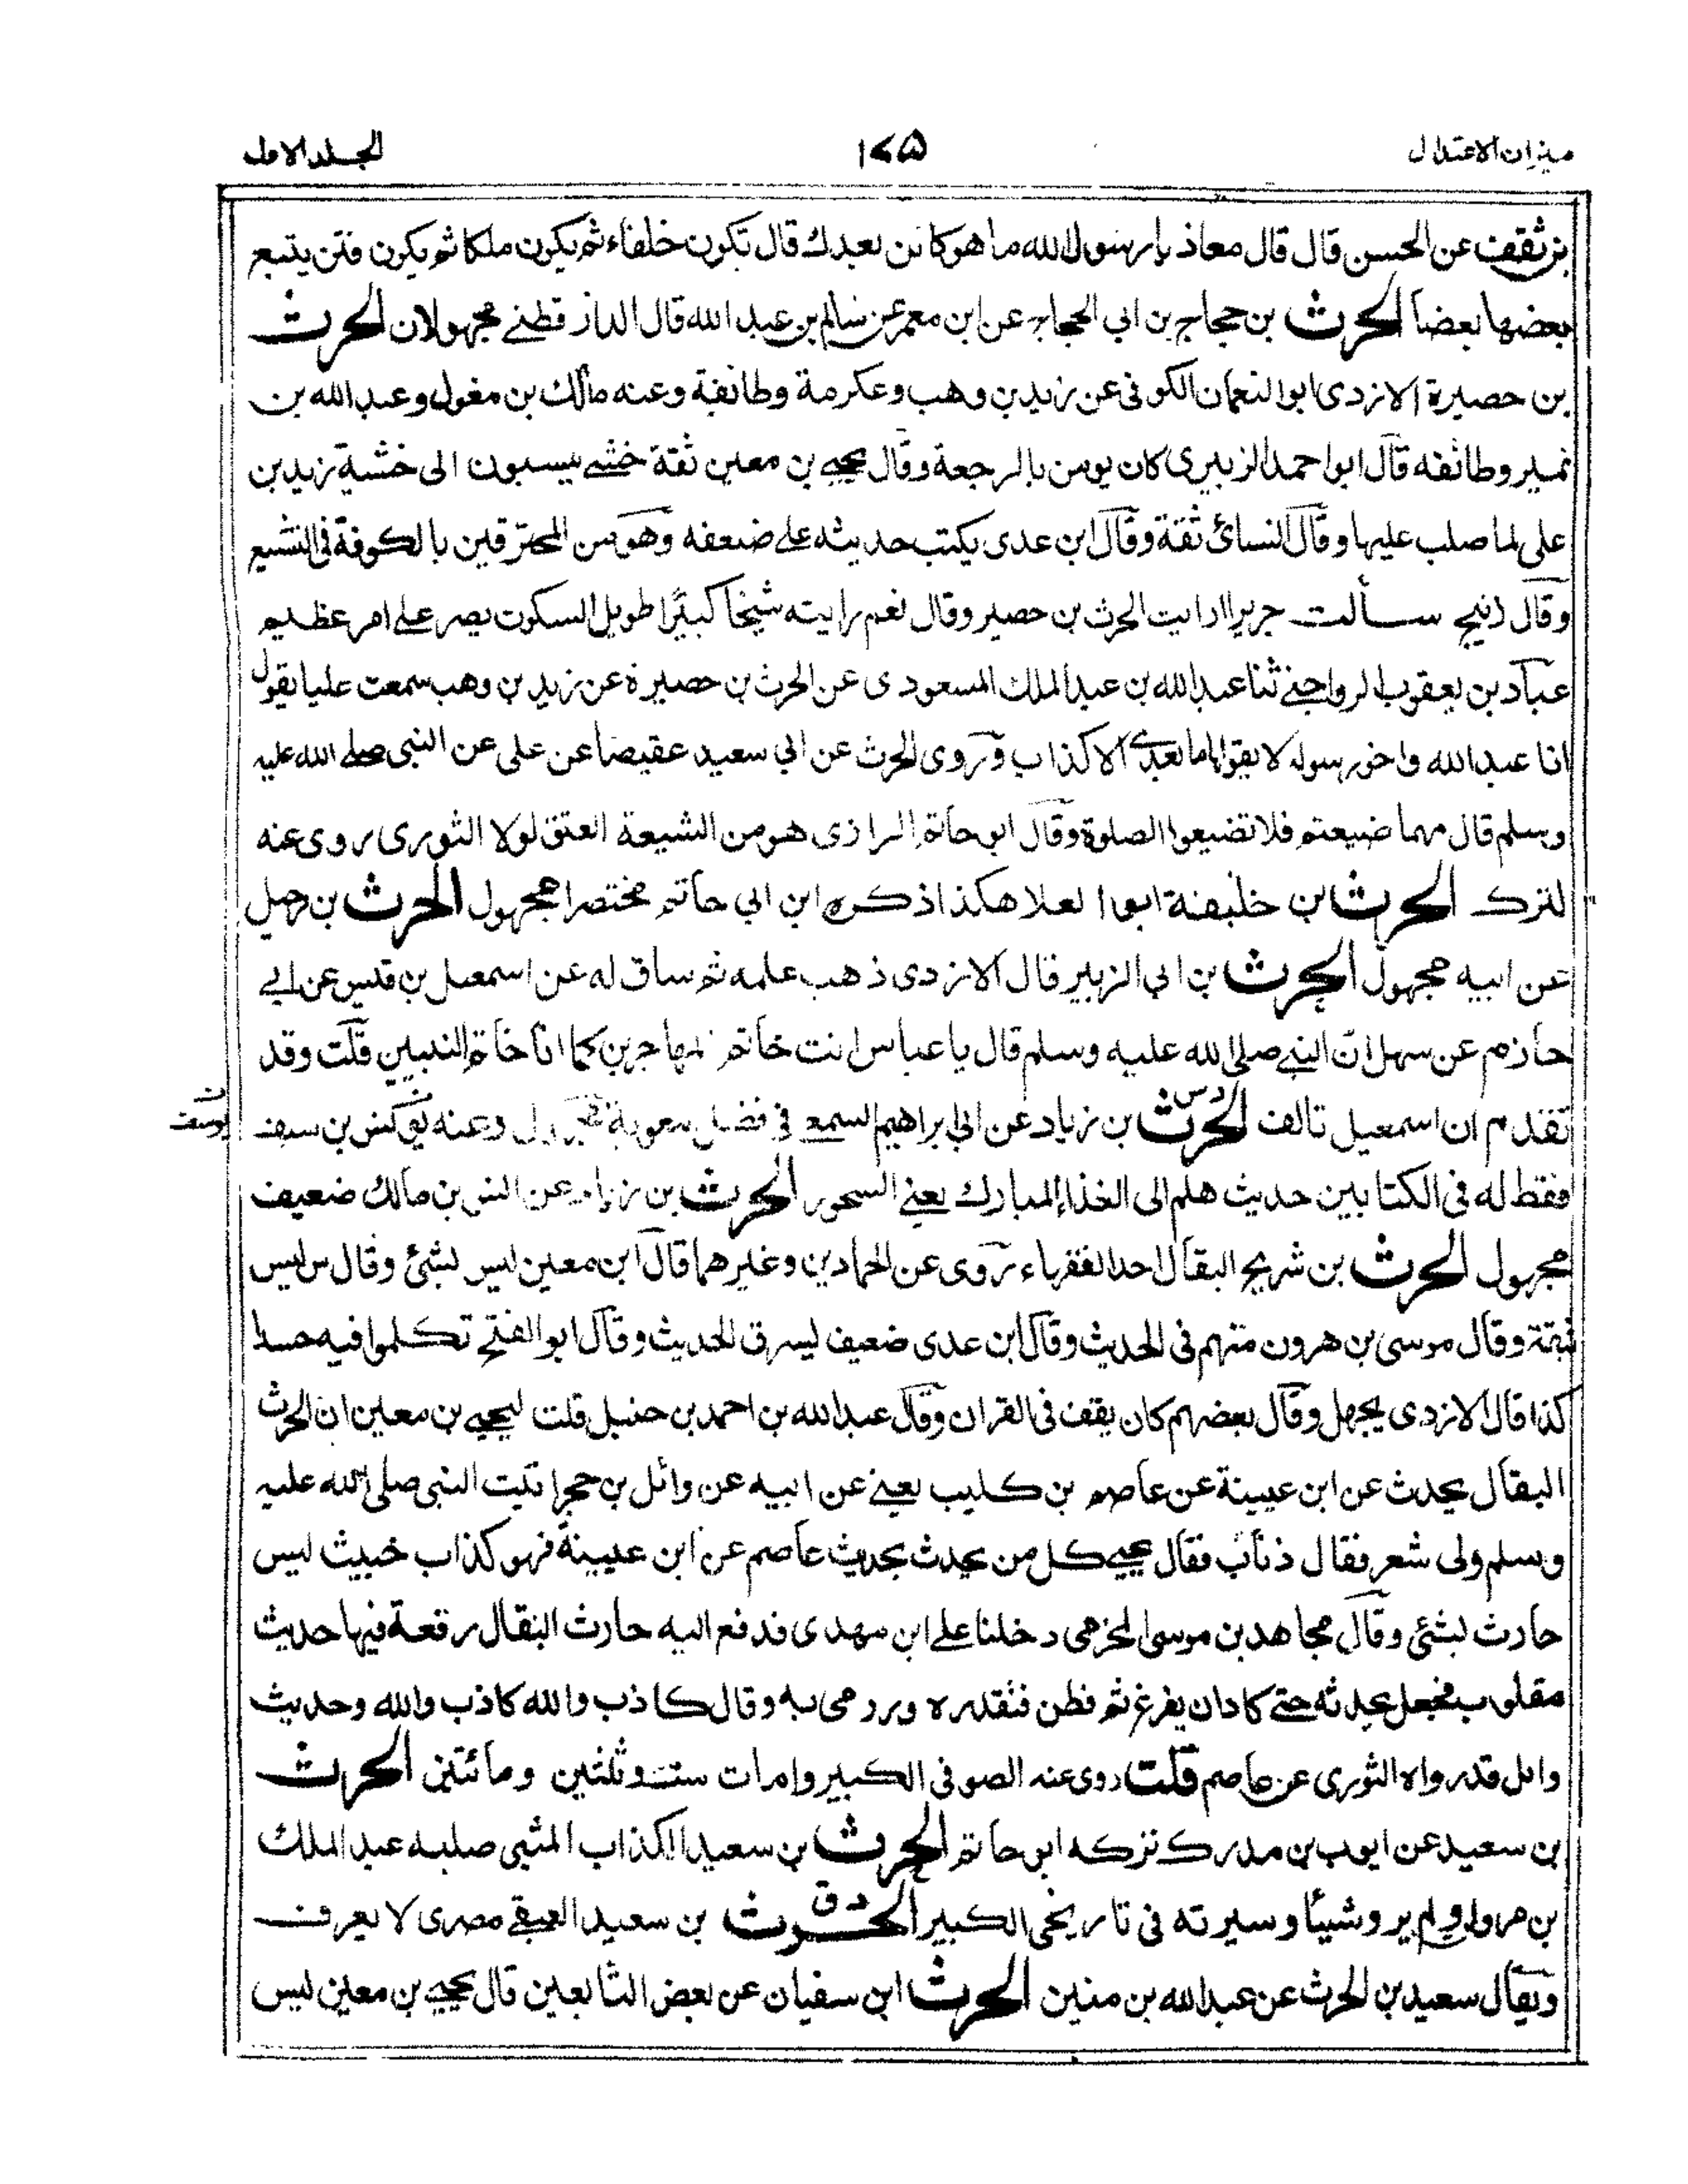 ميزان الاعتدال ١٧٥ الجلد الاول
بن ثقف عن الحسن قال قال معاذ يا رسول الله ما هو كائن بعدك قال تكون خلفاء ثم يكون ملكا ثم يكون فتن يتبع
بعضها بعضا الحرث بن حجاج بن ابي الحجاج عن ابن معمر عن سالم بن عبد الله قال الدار قطنے مجهولان الحرث
بن حصيرة الازدى ابو النعمان الكوفى عن زيد بن وهب وعكرمة وطائفة وعنه مالك بن مغول وعبد الله بن
نمير وطائفه قال ابو احمد الزبيرى كان يومن بالرجعة وقال يحيے بن معين ثقة خشبے ينسبون الى خشبة زيد بن
على لما صلب عليها وقال النسائ ثقة وقال ابن عدى يكتب حديثه علے ضعفه وهو من المحترقين بالكوفة فى التشيع
وقال زنيج سألت جريرا ارايت الحرث بن حصير وقال نعم رايته شيخا كبيرا طويل السكوت يصر علے امر عظيم
عباد بن يعقوب الرواجنے ثنا عبد الله بن عبد الملك المسعودى عن الحرث بن حصيرة عن زيد بن وهب سمعت عليا يقول
انا عبد الله واخو رسوله لا يقولها بعدى الا كذاب وروى الحرث عن ابي سعيد عقيصا عن على عن النبى صلے الله عليه
وسلم قال مهما ضيعتم فلا تضيعوا الصلوة وقال ابو حاتم الرازى هو من الشيعة العتق لولا الثورى روى عنه
لترك الحرث بن خليفة ابو العلا هكذا ذكره ابن ابي حاتم مختصرا مجهول الحرث بن رحيل
عن ابيه مجهول الحرث بن ابي الزبير قال الازدى ذهب علمه ثم ساق له عن اسمعيل بن قيس عن ابے
حازم عن سهل ان النبے صلى الله عليه وسلم قال يا عباس انت خاتم المهاجرين كما انا خاتم النبيين قلت وقد
تقدم ان اسمعيل تالف الحرث دس بن زياد عن ابي ابراهيم السمع فى فضل معوية مجهول وعنه يونس بن سيف يوسف
فقط له فى الكتابين حديث هلم الى الغذاء المبارك يعنے السحور الحرث بن زياد عن انس بن مالك ضعيف
مجهول الحرث بن شريح البقال احد الفقهاء روى عن الحمادين وغيرهما قال ابن معين ليس بشئ وقال س ليس
بثقة وقال موسى بن هرون متهم فى الحديث وقال ابن عدى ضعيف يسرق الحديث وقال ابو الفتح تكلموا فيه حسدا
كذا قال الازدى يجهل وقال بعضهم كان يقف فى القران وقال عبد الله بن احمد بن حنبل قلت ليحيے بن معين ان الحرث
البقال يحدث عن ابن عيينة عن عاصم بن كليب يعنے عن ابيه عن وائل بن حجر اتيت النبى صلى الله عليه
وسلم ولى شعر فقال ذناب فقال يحيے كل من يحدث بحديث عاصم عن ابن عيينة فهو كذاب خبيث ليس
حارث بشئ وقال مجاهد بن موسى المخرمى دخلنا علے ابن مهدى فدفع اليه حارث النقال رقعة فيها حديث
مقلوب فجعل يحدثه حتے كاد ان يفرغ ثم فطن فنقده ورمى به وقال كاذب والله كاذب والله وحديث
وائل قد رواه الثورى عن عاصم قلت روى عنه الصوفى الكبير ومات سنة ست وثلثين ومائتين الحرث
بن سعيد عن ايوب بن مدرك تركه ابو حاتم الحرث بن سعيد الكذاب المتنبى صلبه عبد الملك
بن مروان ولم يرو شيئا وسيرته فى تاريخى الكبير الحرث دق بن سعيد العتقے مصرى لا يعرف
ويقال سعيد بن الحرث عن عبد الله بن منين الحرث ابن سفيان عن بعض التابعين قال يحيے بن معين ليس